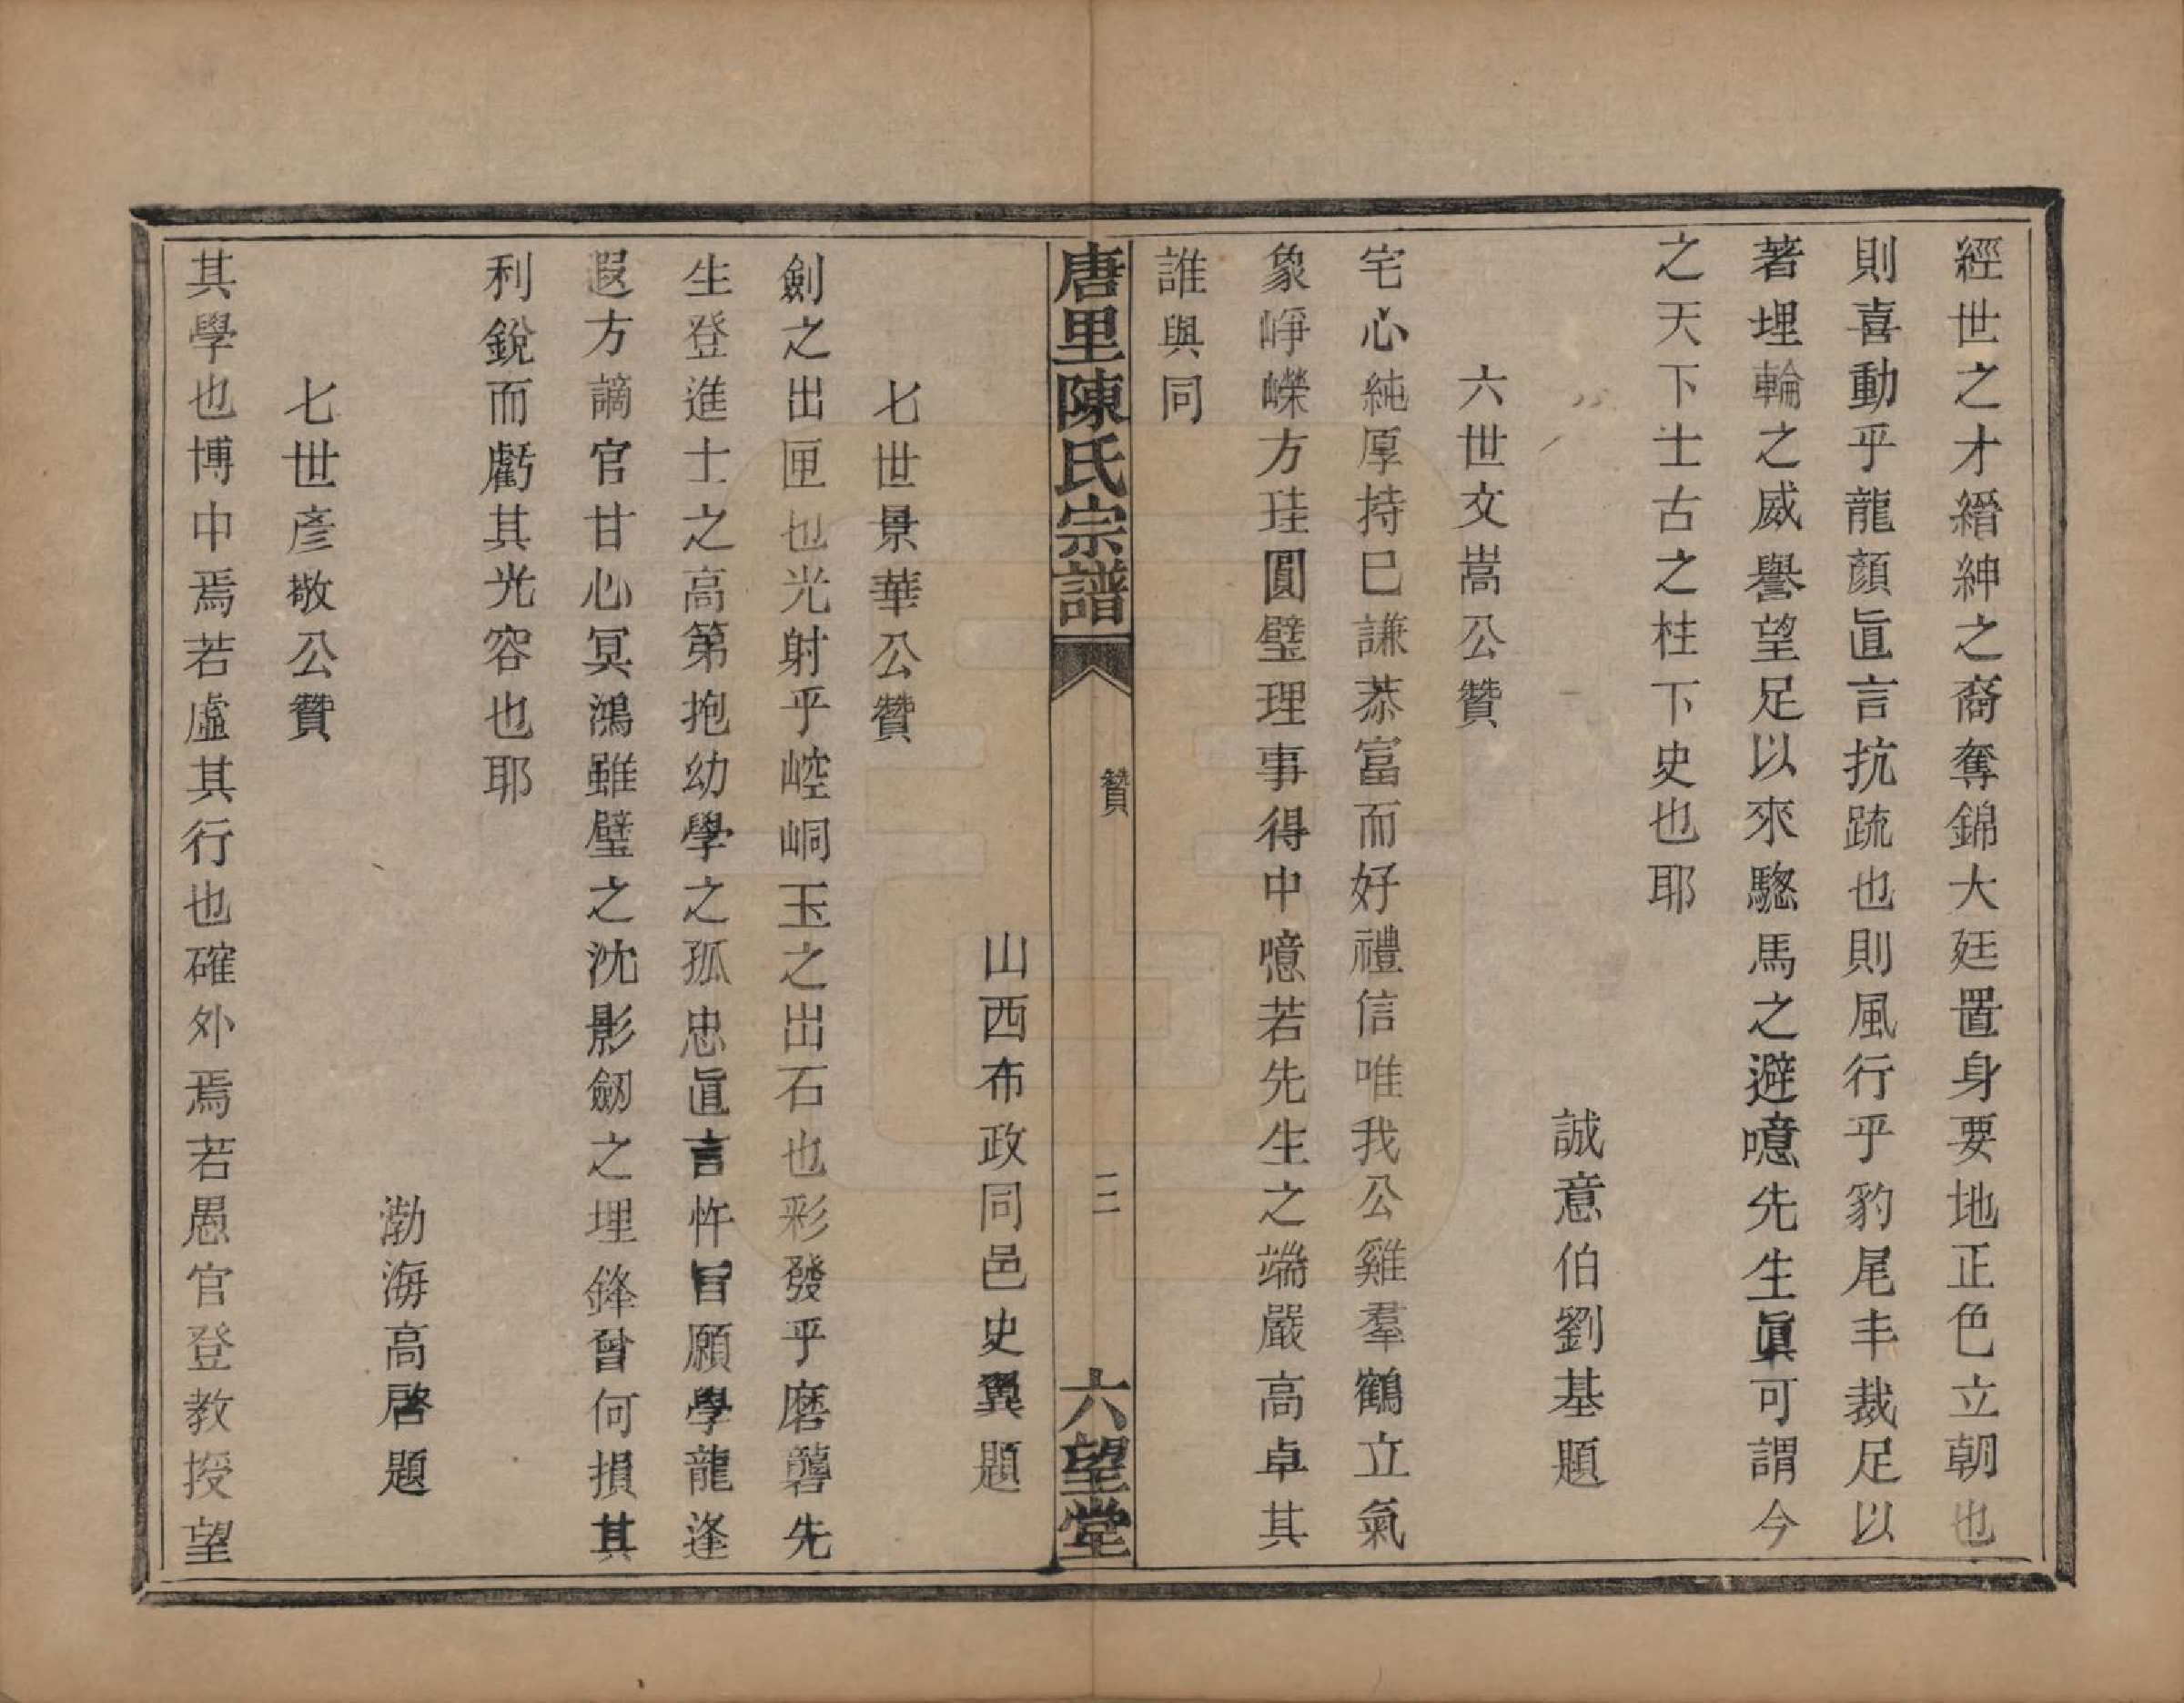 經世之才縉紳之裔奪錦大廷置身要地正色立朝也
則喜動乎龍顏眞言抗疏也則風行乎豹尾丰裁足以
著埋輪之威譽望足以來驄馬之避噫先生眞可謂今
之天下士古之柱下史也耶
誠意伯劉基題
六世文嵩公贊
宅心純厚持巳謙恭富而好禮信唯我公雞羣鶴立氣
象崢嶸方珪圓璧理事得中噫若先生之端嚴高卓其
誰與同
唐里陳氏宗譜
贊
二
六望堂
山西布政同邑史翼題
七世景華公贊
劍之出匣也光射乎崆峒玉之出石也彩發乎磨礱先
生登進士之高第抱幼學之孤忠眞言忤旨願學龍逢
遐方謫官甘心冥鴻雖璧之沈影劒之埋鋒曾何損其
利銳而虧其光容也耶
渤海高啓題
七世彥敬公贊
其學也博中焉若虛其行也確外焉若愚官登教授望